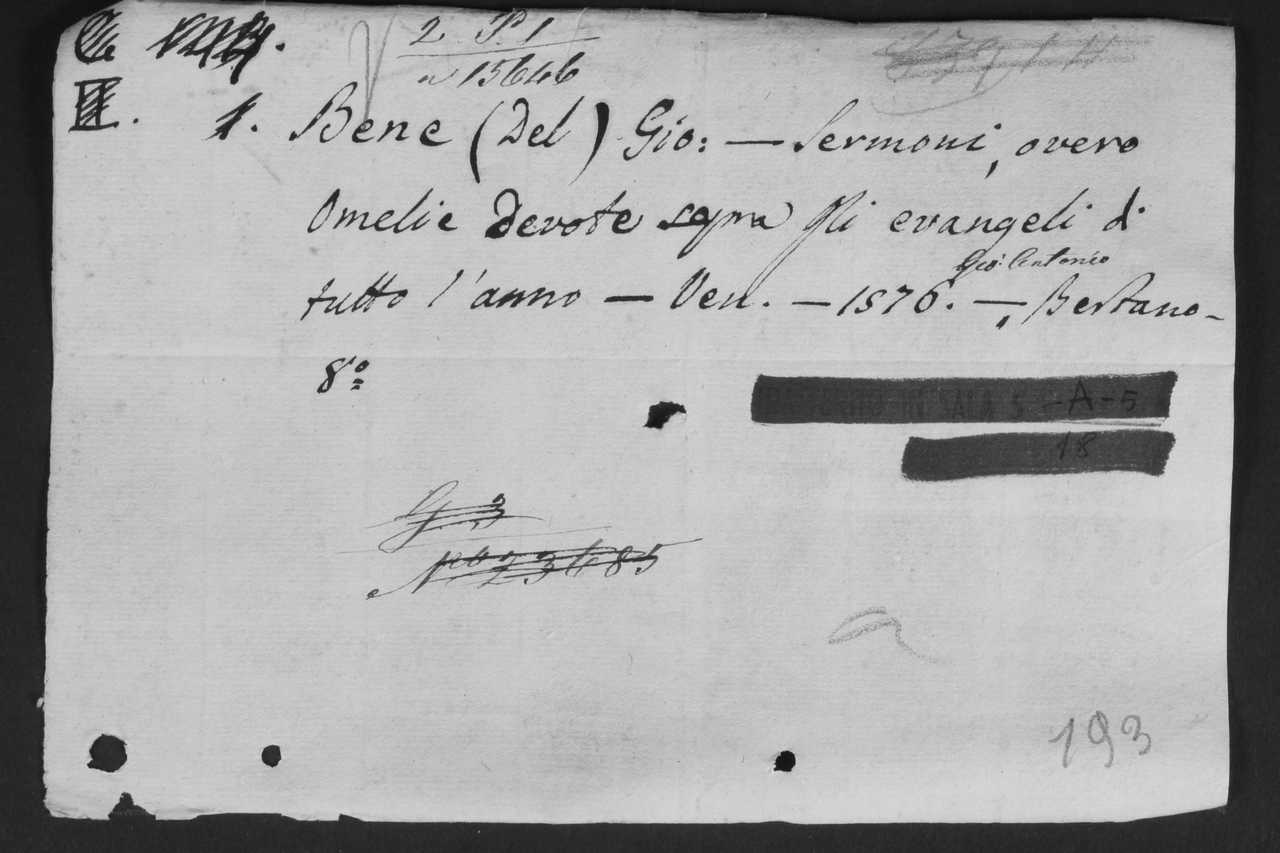 2 P 1
a 15646
II. 1. Bene (Del) Gio: — Sermoni, overo
Omelie Devote sopra gli evangeli di
Gio: Antonio
tutto l'anno — Ven. — 1576. — Bertano -
8º
IN SALA 5 - A - 5
18
G 3
Nº 23685
a
193